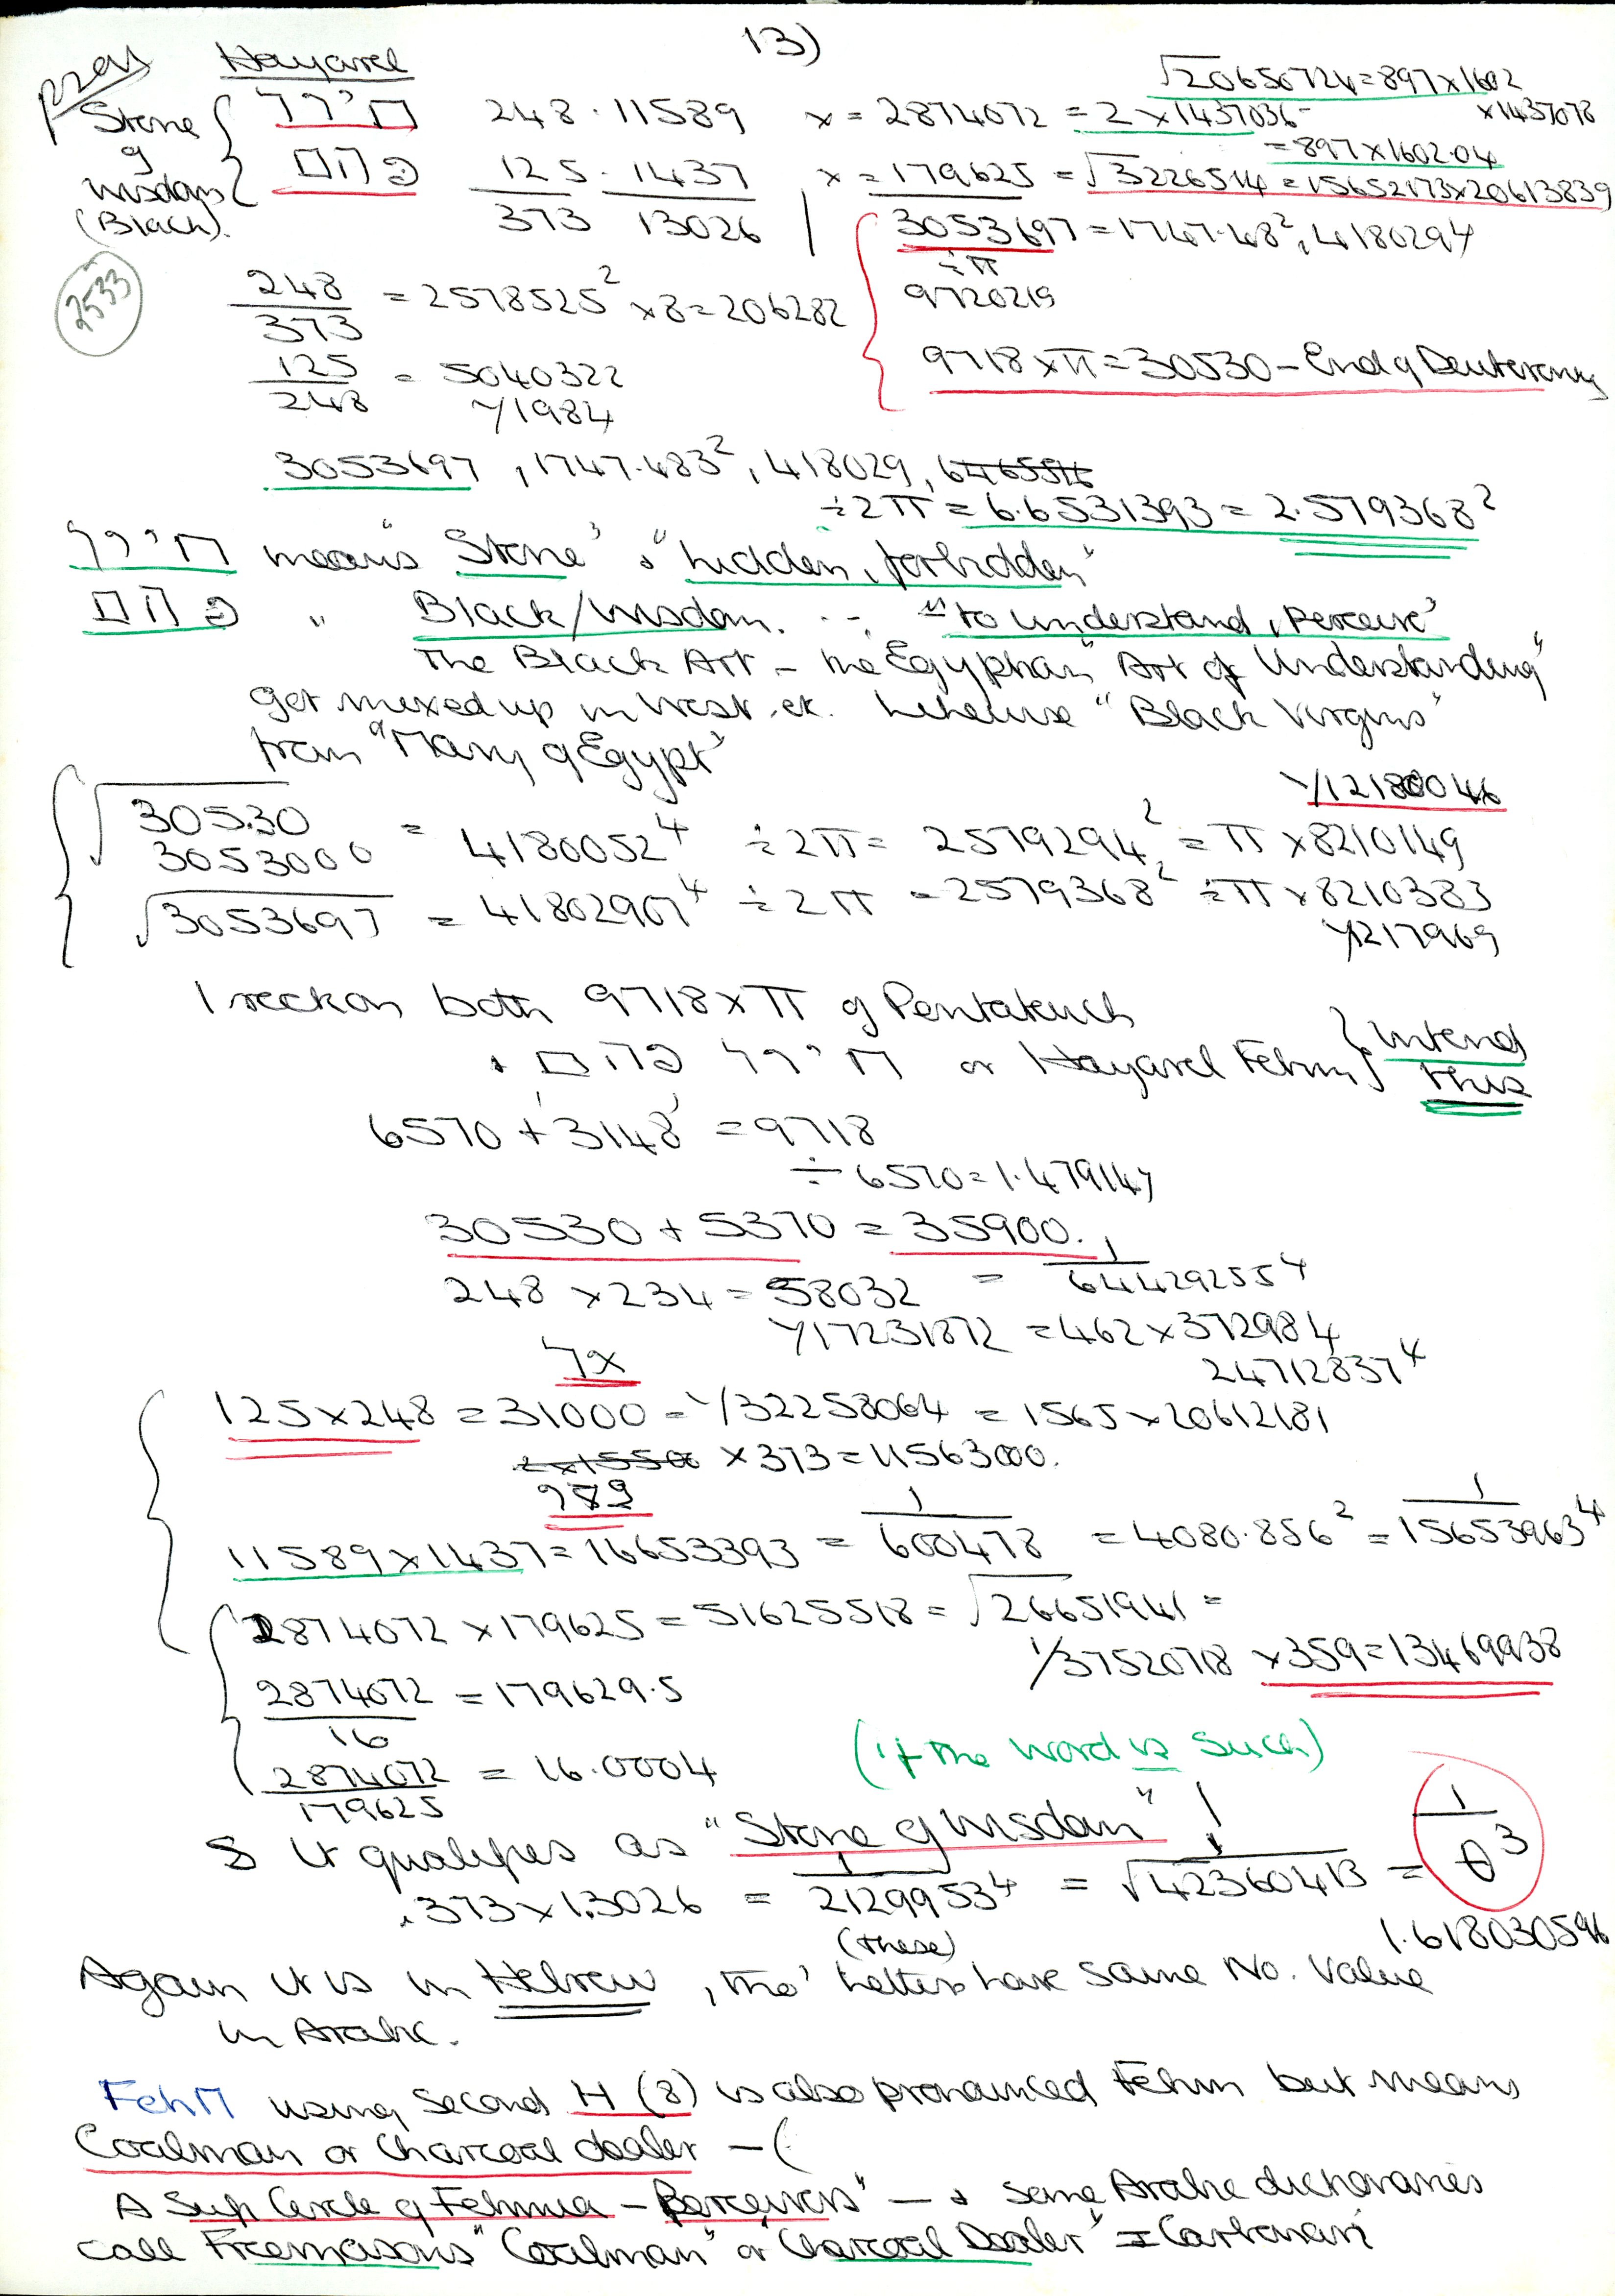 13)
Hayarel
√20656724 = 897 × 1602
× 1437078
Stone
248 · 11589 × = 2874072 = 2 × 1437036
= 897 × 1602.04
of
Wisdom
פהם 125 · 1437 × = 179625 = √3226514 = 15652173 × 20613839
(Black).
373 13026 / 3053697 = 1747.48², 4180294
÷ π
2533
248/373 = 2578525² × 8 = 206282
9720219
9718 × π = 30530 – End of Deuteronomy
125/248 = 5040322
1/1984
3053697, 1747.483², 418029,
÷ 2π = 6.6531393 = 2.579368²
means "Stone" & "hidden, forbidden"
פהם " Black/Wisdom. - - "to understand, Perceive"
The Black Art – the Egyptian "Art of Understanding"
Get mixed up in West. etc. Likewise "Black Virgins"
from "Mary of Egypt"
1/12180046
√30530 3053000 = 4180052⁴ ÷ 2π = 2579294² = π × 8210149
√3053697 = 41802907⁴ ÷ 2π = 2579368² ÷ π × 8210383
1/1217969
I reckon both 9718 × π of Pentateuch
& פהם or Hayarel Fehm } intend this
6570 + 3148 = 9718
÷ 6570 = 1.479147
30530 + 5370 = 35900.
248 × 234 = 58032 = 1/64429255⁴
1/17231872 = 462 × 372984
24712837⁴
125 × 248 = 31000 = 1/32258064 = 1565 × 20612181
× 373 = 11563000.
11589 × 1437 = 16653393 = 1/600478 = 4080.856² = 1/15653963⁴
2874072 × 179625 = 51625518 = √26651941 =
1/3752078 × 359 = 13469938
2874072/16 = 179629.5
2874072/179625 = 16.0004
(if the word is such)
So it qualifies as "Stone of Wisdom"!
.373 × 1.3026 = 1/2129953⁴ = 1/√42360413 = 1/θ³
1.618030596
(these)
Again it is in Hebrew, tho' letters have same No. Value
in Arabic.
Fehח using second H (8) is also pronounced Fehm but means
Coalman or Charcoal dealer – (
A Sufi Circle of Fehmia – Perceivers" – & some Arabic dictionaries
call Freemasons "Coalman" or "Charcoal Dealer" = Carbonari